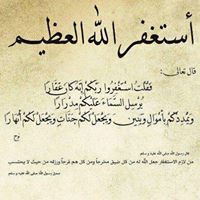 أستغفر الله العظيم
قال تعالى:
فَقُلْتُ اسْتَغْفِرُوا رَبَّكُمْ إِنَّهُ كَانَ غَفَّارًا
يُرْسِلِ السَّمَاءَ عَلَيْكُمْ مِدْرَارًا
وَيُمْدِدْكُمْ بِأَمْوَالٍ وَبَنِينَ وَيَجْعَلْ لَكُمْ جَنَّاتٍ وَيَجْعَلْ لَكُمْ أَنْهَارًا
نوح
قال رسول الله صلى الله عليه وسلم
من لازم الاستغفار جعل الله له من كل ضيق مخرجا ومن كل هم فرجا ورزقه من حيث لا يحتسب
صدق رسول الله صلى الله عليه وسلم